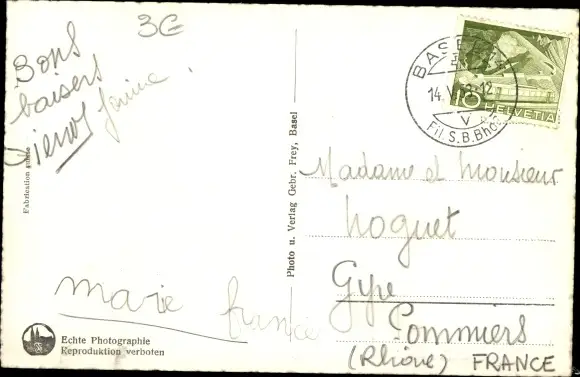 3€
Bons
baisers
Pierrot Janine.
Fabrication suisse
marie france
Echte Photographie
Reproduktion verboten
Photo u. Verlag Gebr. Frey, Basel
BASEL
14.V
12
V
Fil.S.B.Bhof
10
HELVETIA
Madame et Monsieur
hoguet
Gype
Pommiers
(Rhône) FRANCE